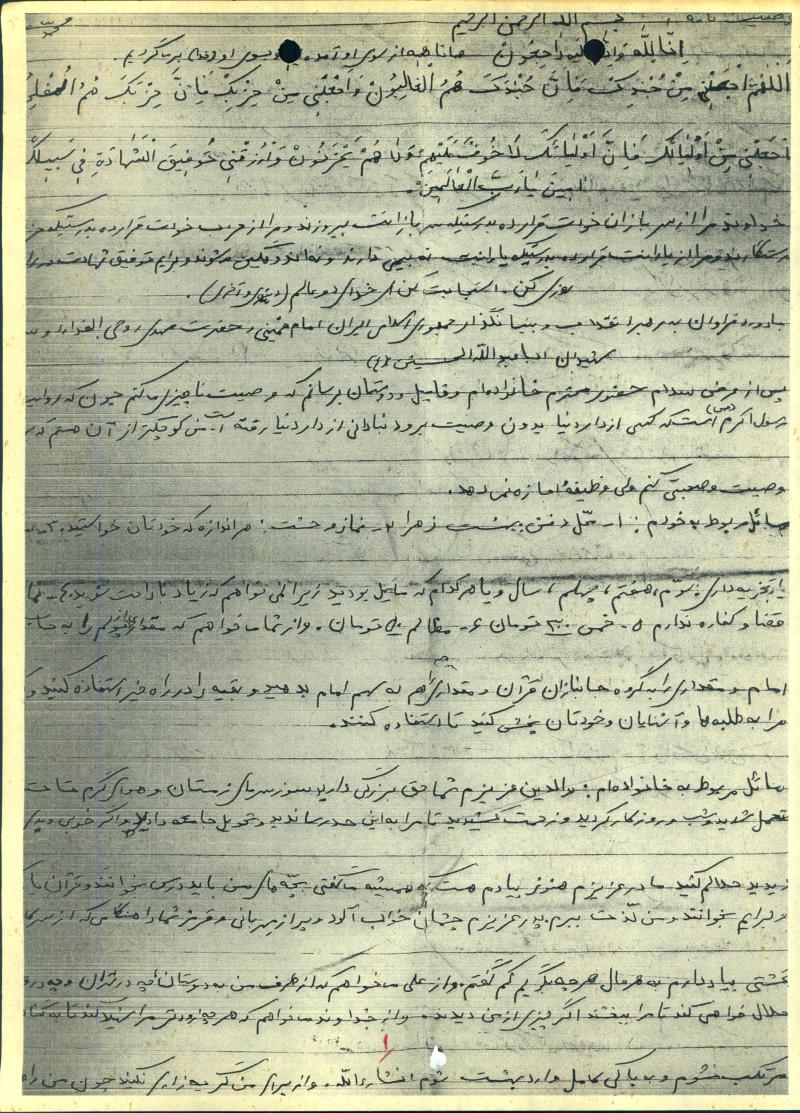 وصیت نامه
بسم الله الرحمن الرحیم
انا لله و انا الیه راجعون همانا همه از سوی او آمده و بسوی او (خدا) بر می‌گردیم.
اللهم اجعلنی من جندک فان جندک هم الغالبون واجعلنی من حزبک فان حزبک هم المفلحون
اجعلنی من اولیائک فان اولیائک لا خوف علیهم ولا هم یحزنون وارزقنی توفیق الشهادة فی سبیلک
آمین یا رب العالمین.
خداوندا مرا از سربازان خودت قرار ده بدرستیکه سربازانت پیروزند و مرا از حزب خودت قرار ده بدرستیکه حز
رستگارند و مرا از یارانت قرار ده بدرستیکه یارانت نه بیمی دارند و نه اندوهگین میشوند و برایم توفیق شهادت در را
روزی کن. استجابت کن ای خدای دو عالم (دنیوی و آخری).
با درود فراوان به رهبر انقلاب و بنیانگذار جمهوری اسلامی ایران امام خمینی و حضرت مهدی روحی الفداه و
شهیدان اباعبدالله الحسین (ع)
پس از عرض سلام حضور محترم خانواده‌ام و فامیل و دوستان برسانم که وصیت ناچیزی می‌کنم چون که روایت
رسول اکرم (ص) است که کسی از دار دنیا بدون وصیت برود نادانی از دار دنیا رفته است من کوچکتر از آن هستم که
وصیت و صحبتی کنم ولی وظیفه اجازه نمی‌دهد.
مسائل مربوط به خودم: ۱- محل دفن بهشت زهرا ۲- نماز وحشت: هر اندازه که خودتان خواستید. ۳-
سوم، هفتم، چهلم، سال و یا هر کدام که مایل بودید زیرا نمی‌خواهم که زیاد ناراحت شوید. ۴- نما
قضا و کفاره ندارم ۵- خمس تومان ۶- مظالم تومان. و از شما میخواهم که مقداری از پولم را به حساب
امام و مقداری را به گروه جانبازان قرآن و مقداری هم به سهم امام بدهید و بقیه را در راه خیر استفاده کنید و
مرا به طلبه‌ها و آشنایان و خودتان پخش کنید تا استفاده کنند.
مسائل مربوط به خانواده‌ام: والدین عزیزم شما حق بزرگی دارید سوز سرمای زمستان و هوای گرم تابست
تحمل شدید و شب و روز کار کردید و زحمت کشیدید تا مرا به این حد رساندید و تحویل جامعه دادید و اگر خوبی و بدی
ندیدید حلالم کنید مادر عزیزم هنوز بیادم هست که همیشه می‌گفتی بچه‌های من باید درس بخوانند و قرآن یا
و برایم بخوانند و من لذت ببرم. پدر عزیزم چشمان خواب آلود و پر از مهربانی و قرمز شما را هنگامی که از سر کا
گشتی بیاد دارم به هر حال هر چه بگویم کم گفتم. و از علی میخواهم که از طرف من به دوستان چه در تهران و چه در
حلال خواهی کند تا مرا ببخشند اگر چیزی از من دیدند. و از خداوند میخواهم که هر چه زودتر مرا شهید کند تا به گناه
مرتکب نشوم و به پاکی کامل وارد بهشت شوم انشاء الله. و از برای من گریه زاری نکنید چون من راه
۱